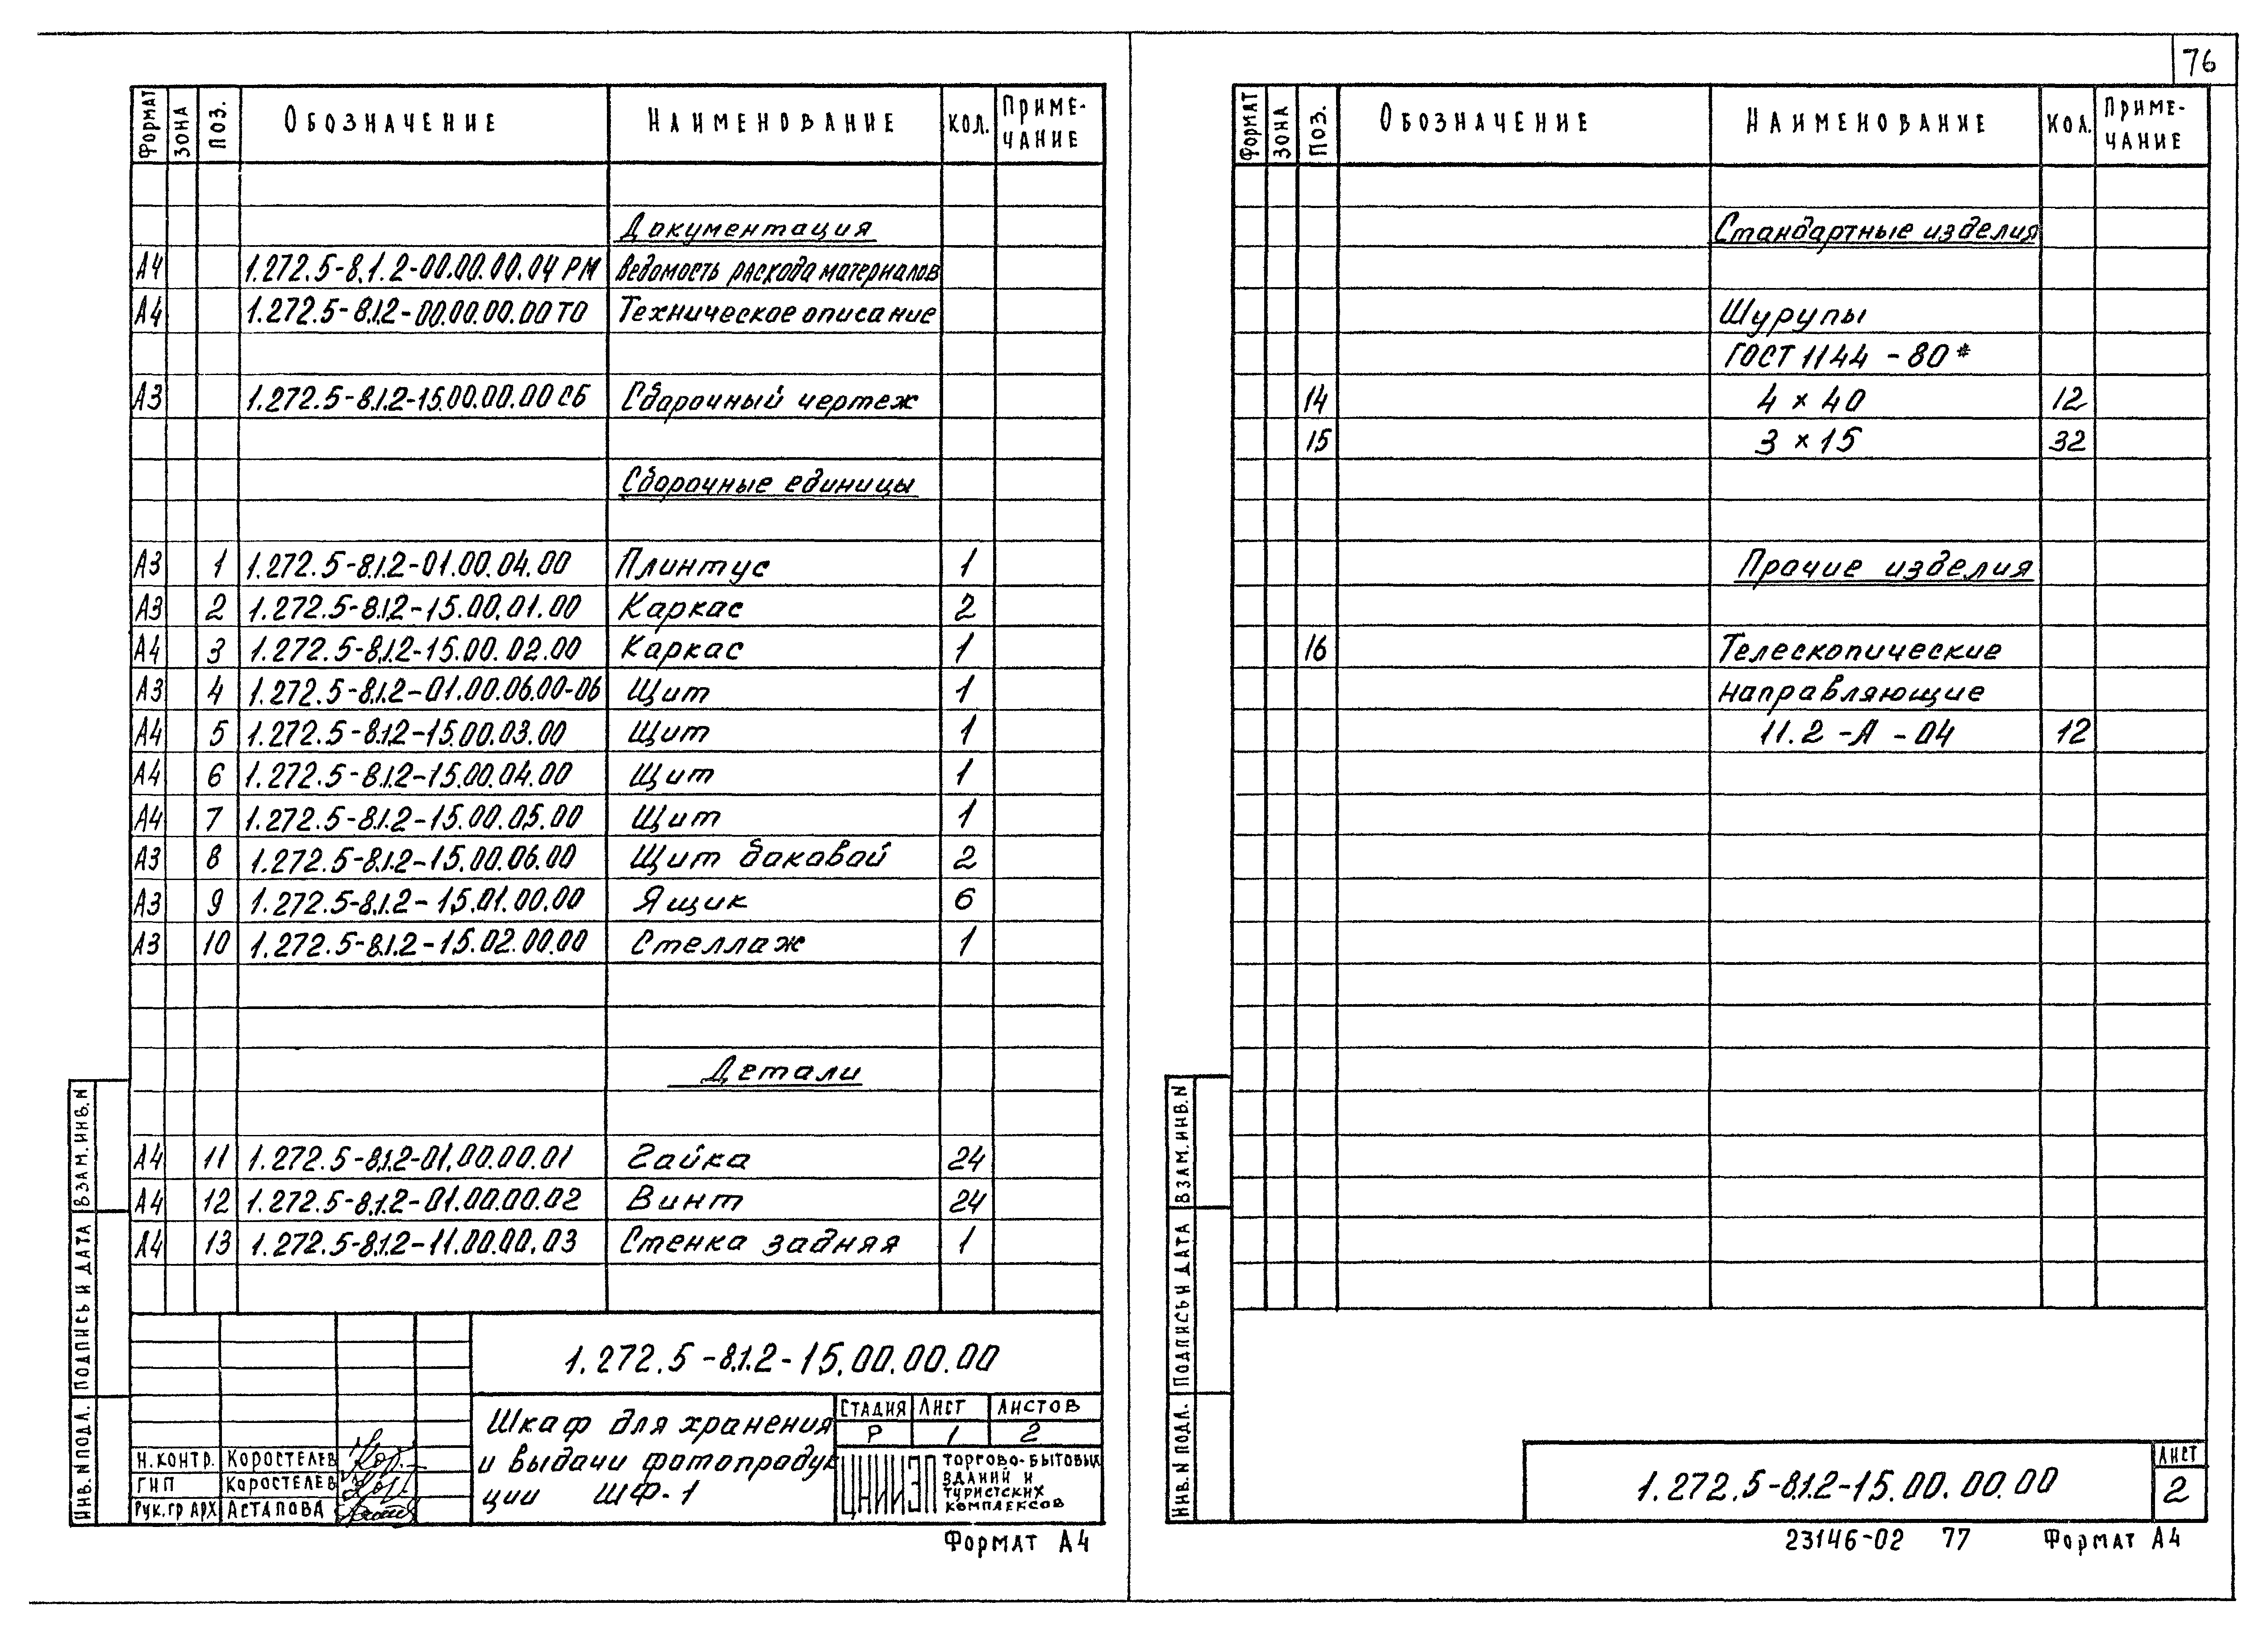 76
Формат Зона Поз. Обозначение Наименование Кол. Приме-
чание
Документация
А4 1.272.5-8.1.2-00.00.00.04 РМ Ведомость расхода материалов
А4 1.272.5-8.1.2-00.00.00.00 ТО Техническое описание
А3 1.272.5-8.1.2-15.00.00.00 СБ Сборочный чертеж
Сборочные единицы
А3 1 1.272.5-8.1.2-01.00.04.00 Плинтус 1
А3 2 1.272.5-8.1.2-15.00.01.00 Каркас 2
А4 3 1.272.5-8.1.2-15.00.02.00 Каркас 1
А3 4 1.272.5-8.1.2-01.00.06.00-06 Щит 1
А4 5 1.272.5-8.1.2-15.00.03.00 Щит 1
А4 6 1.272.5-8.1.2-15.00.04.00 Щит 1
А4 7 1.272.5-8.1.2-15.00.05.00 Щит 1
А3 8 1.272.5-8.1.2-15.00.06.00 Щит боковой 2
А3 9 1.272.5-8.1.2-15.01.00.00 Ящик 6
А3 10 1.272.5-8.1.2-15.02.00.00 Стеллаж 1
Детали
А4 11 1.272.5-8.1.2-01.00.00.01 Гайка 24
А4 12 1.272.5-8.1.2-01.00.00.02 Винт 24
А4 13 1.272.5-8.1.2-11.00.00.03 Стенка задняя 1
Инв. N подл. Подпись и дата Взам. инв. N
1.272.5-8.1.2-15.00.00.00
Шкаф для хранения
и выдачи фотопродук
ции ШФ-1
Стадия Лист Листов
Р 1 2
Н. контр. Коростелев
ГИП Коростелев
Рук. гр арх Астапова
ЦНИИЭП торгово-бытовых
зданий и
туристских
комплексов
Формат А4
Формат Зона Поз. Обозначение Наименование Кол. Приме-
чание
Стандартные изделия
Шурупы
ГОСТ 1144-80*
14 4 × 40 12
15 3 × 15 32
Прочие изделия
16 Телескопические
направляющие
11.2-А-04 12
Инв. N подл. Подпись и дата Взам. инв. N
1.272.5-8.1.2-15.00.00.00
Лист
2
23146-02 77 Формат А4